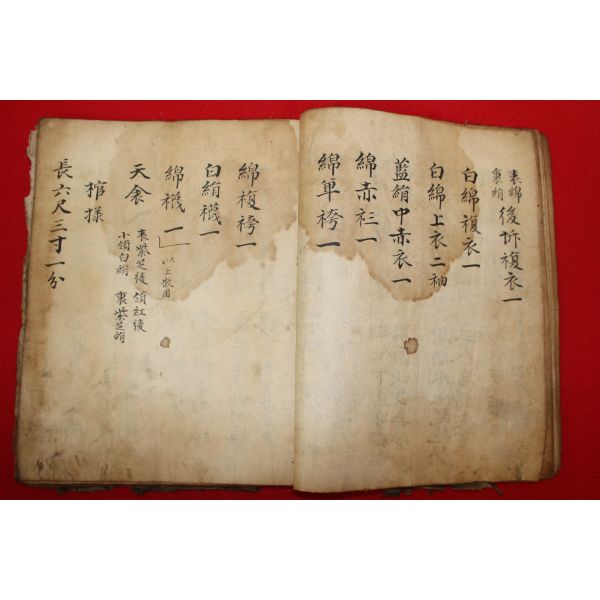 表綿裏綃 後坼複衣一
白綿複衣一
白綿上衣二袖
藍綃中赤衣一
綿赤衫一
綿單袴一
綿複袴一
白綃襪一
綿襪一 以上散用
天衾 表紫芝綾 領紅綾
小領白綃 裏紫芝綃
棺樣
長六尺三寸一分